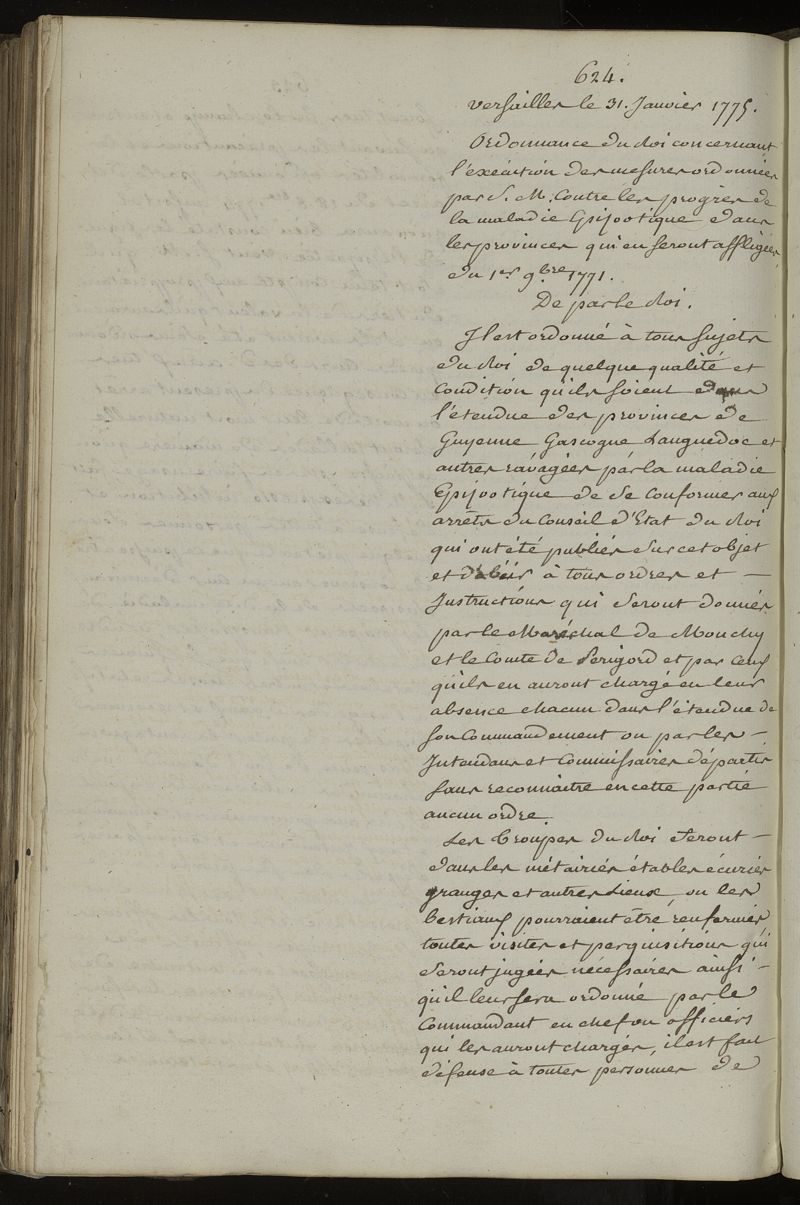 624.
Versailles le 31. Janvier 1775.
Ordonnance du Roi concernant
l'exécution des mesures ordonnées
par S. M. Contre les progrès de
la maladie Epizootique dans
les provinces qui en seront affligées
du 1er 9bre 1771.
De par le Roi.
Il est ordonné à tous sujets
du Roi de quelque qualité et
Condition qu'ils soient dans
l'étendue des provinces de
Guyenne Gascogne Languedoc et
autres ravagées par la maladie
Epizootique de se Conformer aux
arrêts du Conseil d'Etat du Roi
qui ont été publiés sur cet objet
et d'obéir à tous ordres et —
Instructions qui seront donnés
par le Maréchal de Mouchy
et le Comte de Perigord et par ceux
qu'ils en auront chargé en leur
absence chacun dans l'étendue de
son Commandement ou par les —
Intendans et Commissaires départis
sans reconnaitre en cette partie
aucun ordre.
Les Troupes du Roi feront —
dans les métairies étables écuries
granges et autres Lieux, ou les
bestiaux pourraient être renfermés,
toutes visites et perquisitions qui
seront jugées nécessaires ainsi —
qu'il leur sera ordonné par le
Commandant en chef ou officiers
qui les auront chargés, il est fait
défense à toutes personnes de